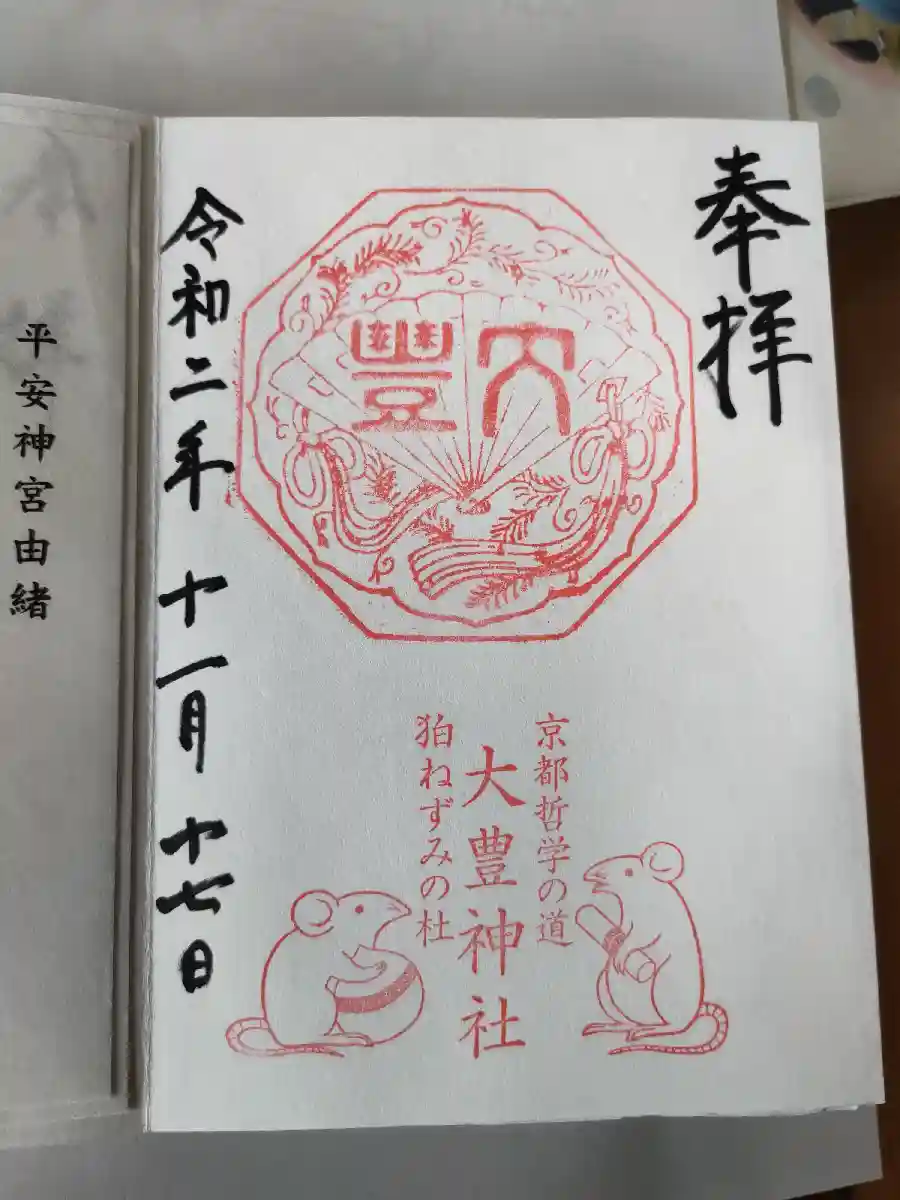 奉拝
大豊
京都哲学の道
大豊神社
狛ねずみの杜
令和二年 十一月 十七日
平安神宮由緒